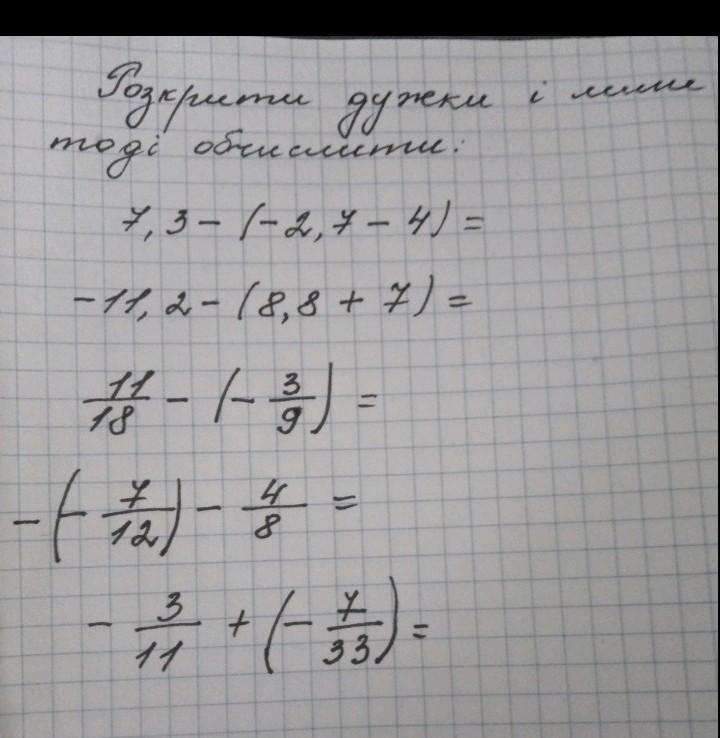 Розкрити дужки і лише
тоді обчислити:
7,3 - (-2,7 - 4) =
-11,2 - (8,8 + 7) =
11/18 - (- 3/9) =
-(- 7/12) - 4/8 =
- 3/11 + (- 7/33) =